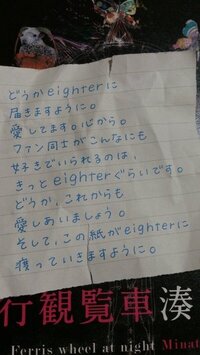 どうかeighterに
届きますように。
愛してます。心から。
ファン同士がこんなにも
好きでいられるのは、
きっとeighterぐらいです。
どうか、これからも
愛しあいましょう。
そして、この紙がeighterに
渡っていきますように。
行観覧車 湊
Ferris wheel at night Minat